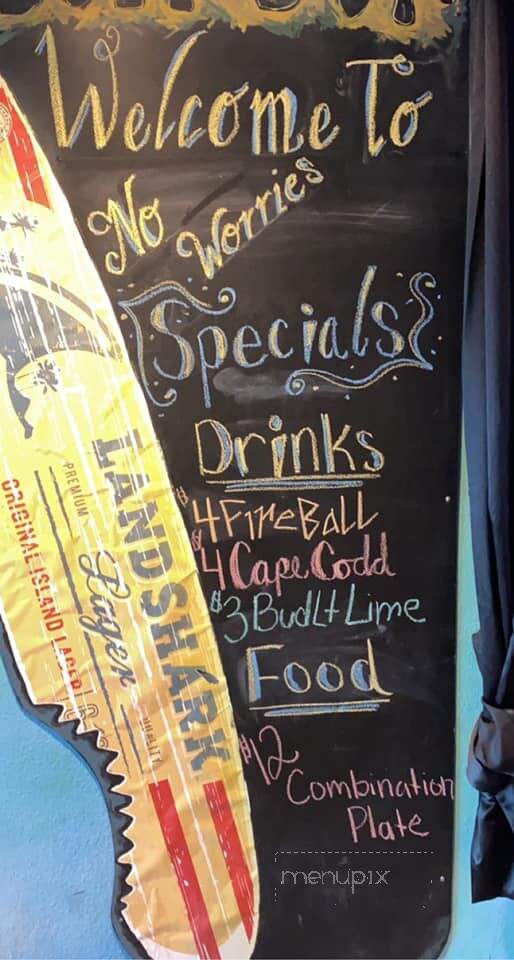 Welcome To
No
Worries
Specials
Drinks
$4 FireBall
$4 Cape Codd
$3 Bud Lt Lime
Food
$12
Combination
Plate
LAND SHARK
PREMIUM
Lager
QUALITY
ORIGINAL ISLAND LAGER
menupix